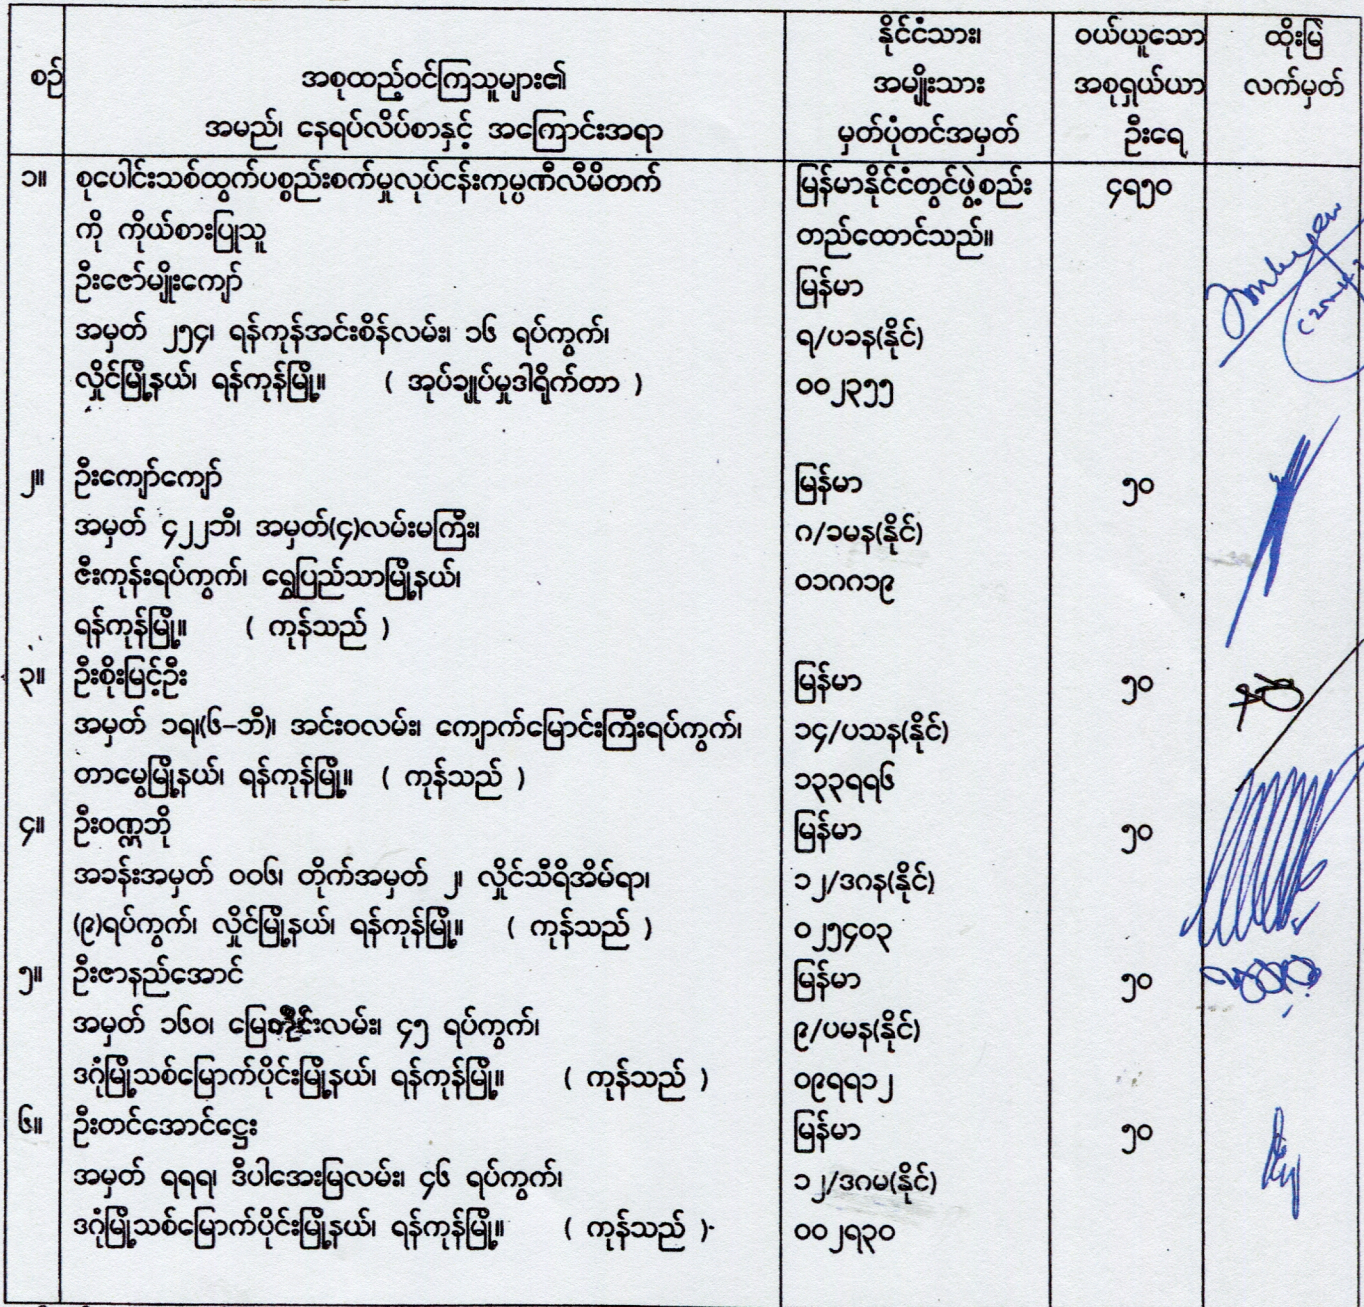 စဉ်
အစုထည့်ဝင်ကြသူများ၏
အမည်၊ နေရပ်လိပ်စာနှင့် အကြောင်းအရာ
နိုင်ငံသား၊
အမျိုးသား
မှတ်ပုံတင်အမှတ်
ဝယ်ယူသော
အစုရှယ်ယာ
ဦးရေ
ထိုးမြဲ
လက်မှတ်
၁။
စုပေါင်းသစ်ထွက်ပစ္စည်းစက်မှုလုပ်ငန်းကုမ္ပဏီလီမိတက်
ကို ကိုယ်စားပြုသူ
ဦးဇော်မျိုးကျော်
အမှတ် ၂၅၄၊ ရန်ကုန်အင်းစိန်လမ်း၊ ၁၆ ရပ်ကွက်၊
လှိုင်မြို့နယ်၊ ရန်ကုန်မြို့။ ( အုပ်ချုပ်မှုဒါရိုက်တာ )
မြန်မာနိုင်ငံတွင်ဖွဲ့စည်း
တည်ထောင်သည်။
မြန်မာ
၇/ပခန(နိုင်)
၀၀၂၃၅၅
၄၇၅၀
၂။
ဦးကျော်ကျော်
အမှတ် ၄၂၂ဘီ၊ အမှတ်(၄)လမ်းမကြီး၊
ဇီးကုန်းရပ်ကွက်၊ ရွှေပြည်သာမြို့နယ်၊
ရန်ကုန်မြို့။ ( ကုန်သည် )
မြန်မာ
ဂ/ခမန(နိုင်)
၀၁ဂဂ၁၉
၅၀
၃။
ဦးစိုးမြင့်ဦး
အမှတ် ၁၇၊(၆-ဘီ)၊ အင်းဝလမ်း၊ ကျောက်မြောင်းကြီးရပ်ကွက်၊
တာမွေမြို့နယ်၊ ရန်ကုန်မြို့။ ( ကုန်သည် )
မြန်မာ
၁၄/ပသန(နိုင်)
၁၃၃၇၇၆
၅၀
၄။
ဦးဝဏ္ဏဘို
အခန်းအမှတ် ၀၀၆၊ တိုက်အမှတ် ၂၊ လှိုင်သီရိအိမ်ရာ၊
(၉)ရပ်ကွက်၊ လှိုင်မြို့နယ်၊ ရန်ကုန်မြို့။ ( ကုန်သည် )
မြန်မာ
၁၂/ဒဂန(နိုင်)
၀၂၅၄၀၃
၅၀
၅။
ဦးဇာနည်အောင်
အမှတ် ၁၆၀၊ လမ်း၊ ၄၅ ရပ်ကွက်၊
ဒဂုံမြို့သစ်မြောက်ပိုင်းမြို့နယ်၊ ရန်ကုန်မြို့။ ( ကုန်သည် )
မြန်မာ
၉/ပမန(နိုင်)
၀၉၇၇၁၂
၅၀
၆။
ဦးတင်အောင်ဌေး
အမှတ် ၇၇၇၊ ဒီပါအေးမြလမ်း၊ ၄၆ ရပ်ကွက်၊
ဒဂုံမြို့သစ်မြောက်ပိုင်းမြို့နယ်၊ ရန်ကုန်မြို့။ ( ကုန်သည် )
မြန်မာ
၁၂/ဒဂမ(နိုင်)
၀၀၂၇၃၀
၅၀